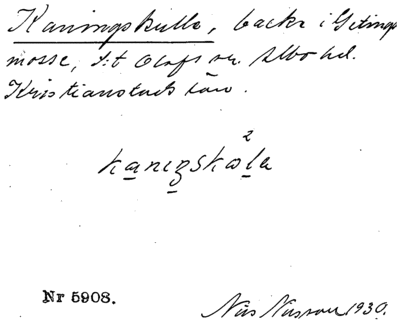 Kaningskulle, backe i Getings
mosse, S:t Olofs sn. Albo hd.
Kristianstads län.
Nr 5908.
Nils 1930.